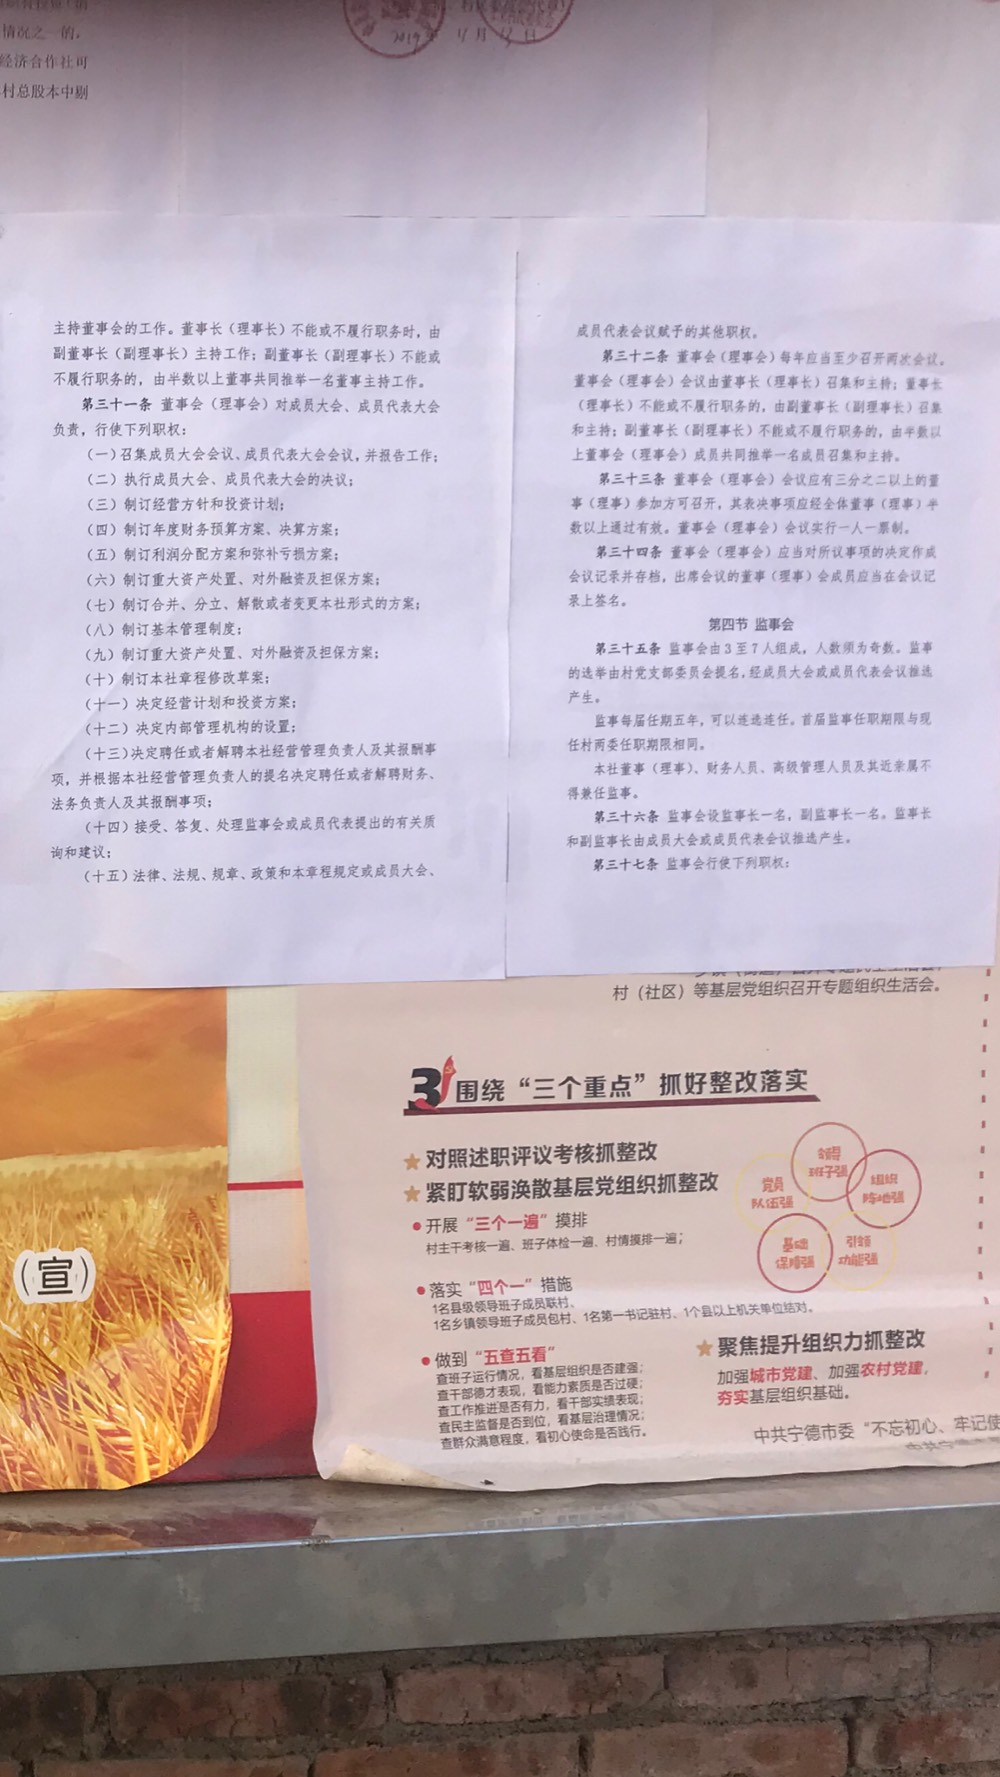 情况之一的,
经济合作社可
村总股本中剔
2019年11月13日
主持董事会的工作。董事长(理事长)不能或不履行职务时,由
副董事长(副理事长)主持工作;副董事长(副理事长)不能或
不履行职务的,由半数以上董事共同推举一名董事主持工作。
第三十一条 董事会(理事会)对成员大会、成员代表大会
负责,行使下列职权:
(一)召集成员大会会议、成员代表大会会议,并报告工作;
(二)执行成员大会、成员代表大会的决议;
(三)制订经营方针和投资计划;
(四)制订年度财务预算方案、决算方案;
(五)制订利润分配方案和弥补亏损方案;
(六)制订重大资产处置、对外融资及担保方案;
(七)制订合并、分立、解散或者变更本社形式的方案;
(八)制订基本管理制度;
(九)制订重大资产处置、对外融资及担保方案;
(十)制订本社章程修改草案;
(十一)决定经营计划和投资方案;
(十二)决定内部管理机构的设置;
(十三)决定聘任或者解聘本社经营管理负责人及其报酬事
项,并根据本社经营管理负责人的提名决定聘任或者解聘财务、
法务负责人及其报酬事项;
(十四)接受、答复、处理监事会或成员代表提出的有关质
询和建议;
(十五)法律、法规、规章、政策和本章程规定或成员大会、
成员代表会议赋予的其他职权。
第三十二条 董事会(理事会)每年应当至少召开两次会议。
董事会(理事会)会议由董事长(理事长)召集和主持;董事长
(理事长)不能或不履行职务的,由副董事长(副理事长)召集
和主持;副董事长(副理事长)不能或不履行职务的,由半数以
上董事会(理事会)成员共同推举一名成员召集和主持。
第三十三条 董事会(理事会)会议应有三分之二以上的董
事(理事)参加方可召开,其表决事项应经全体董事(理事)半
数以上通过有效。董事会(理事会)会议实行一人一票制。
第三十四条 董事会(理事会)应当对所议事项的决定作成
会议记录并存档,出席会议的董事(理事)会成员应当在会议记
录上签名。
第四节 监事会
第三十五条 监事会由3至7人组成,人数须为奇数。监事
的选举由村党支部委员会提名,经成员大会或成员代表会议推选
产生。
监事每届任期五年,可以连选连任。首届监事任职期限与现
任村两委任职期限相同。
本社董事(理事)、财务人员、高级管理人员及其近亲属不
得兼任监事。
第三十六条 监事会设监事长一名,副监事长一名。监事长
和副监事长由成员大会或成员代表会议推选产生。
第三十七条 监事会行使下列职权:
村(社区)等基层党组织召开专题组织生活会。
3 围绕“三个重点”抓好整改落实
对照述职评议考核抓整改
紧盯软弱涣散基层党组织抓整改
开展“三个一遍”摸排
村主干考核一遍、班子体检一遍、村情摸排一遍;
落实“四个一”措施
1名县级领导班子成员联村、
1名乡镇领导班子成员包村、1名第一书记驻村、1个县以上机关单位结对。
做到“五查五看”
查班子运行情况,看基层组织是否建强;
查干部德才表现,看能力素质是否过硬;
查工作推进是否有力,看干部实绩表现;
查民主监督是否到位,看基层治理情况;
查群众满意程度,看初心使命是否践行。
领导
班子强
党员
队伍强
组织
阵地强
基础
保障强
引领
功能强
聚焦提升组织力抓整改
加强城市党建、加强农村党建,
夯实基层组织基础。
中共宁德市委“不忘初心、牢记使
(宣)